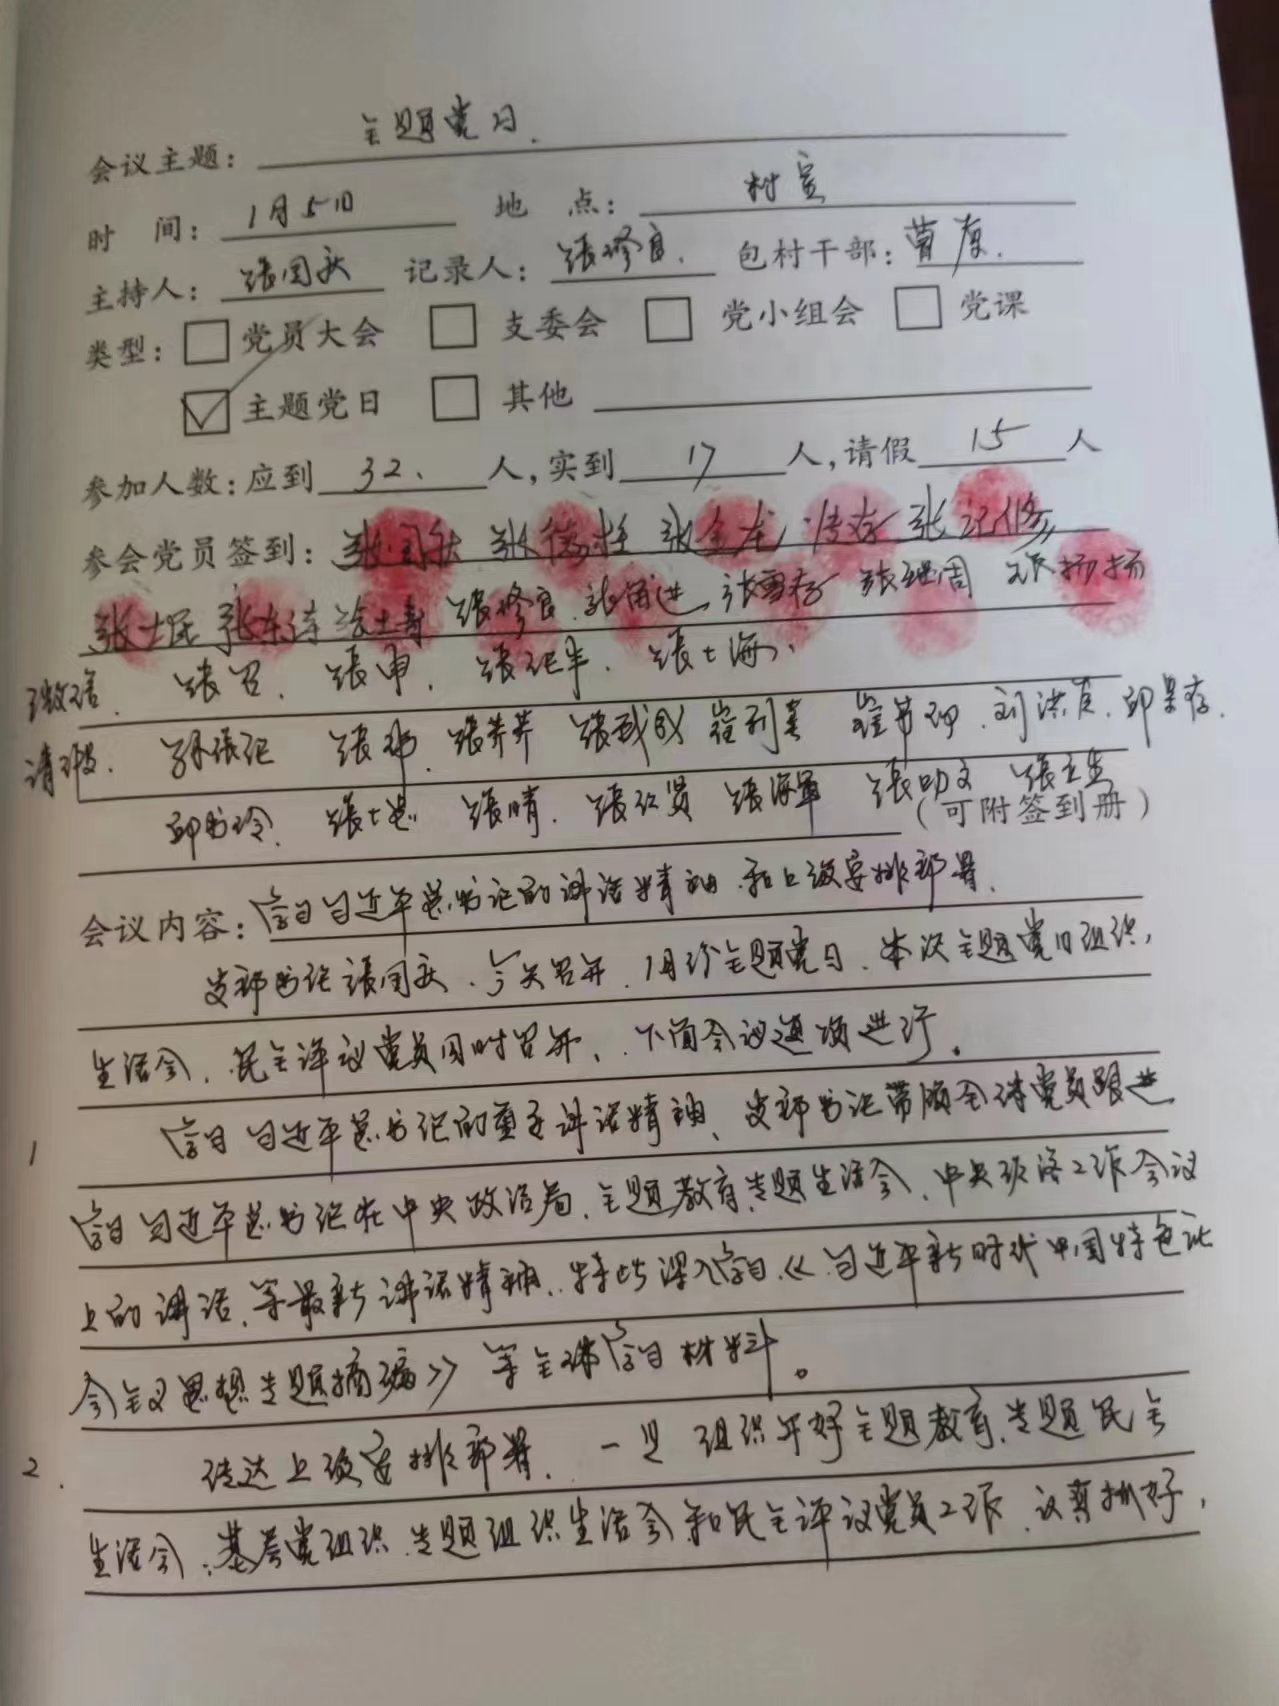 会议主题: 主题党日.
时 间: 1月5日 地 点: 村室
主持人: 张国庆 记录人: 张修良. 包村干部: 曹原.
类型: 党员大会 支委会 党小组会 党课
主题党日 其他
参加人数: 应到 32. 人, 实到 17 人, 请假 15 人
参会党员签到: 张国庆 张德柱 张金龙 张记修
张士民 张修良 张雪存 张继周 张扬扬
张召. 张申. 张记半. 张七海.
请假. 孙张记 张邓. 张荞荞 张成 崔利美 刘洪 邱景存.
邱书玲. 张七忠 张晴. 张红贤 张海军 张助文 张立生
(可附签到册)
会议内容: 学习习近平总书记的讲话精神.和上级安排部署.
支部书记张国庆.今天召开.1月份主题党日.本次主题党日组织,
生活会.民主评议党员同时召开,.下面会议逐项进行。
1 学习习近平总书记的重要讲话精神、支部书记带领全体党员跟进
学习习近平总书记在中央政治局.主题教育.专题生活会.中央政治工作会议
上的讲话.等最新讲话精神..特此深入学习.《习近平新时代中国特色社
会主义思想专题摘编》等主体学习材料。
2. 传达上级安排部署.一是组织开好主题教育.专题民主
生活会.基层党组织.专题组织生活会和民主评议党员工作.认真抓好,